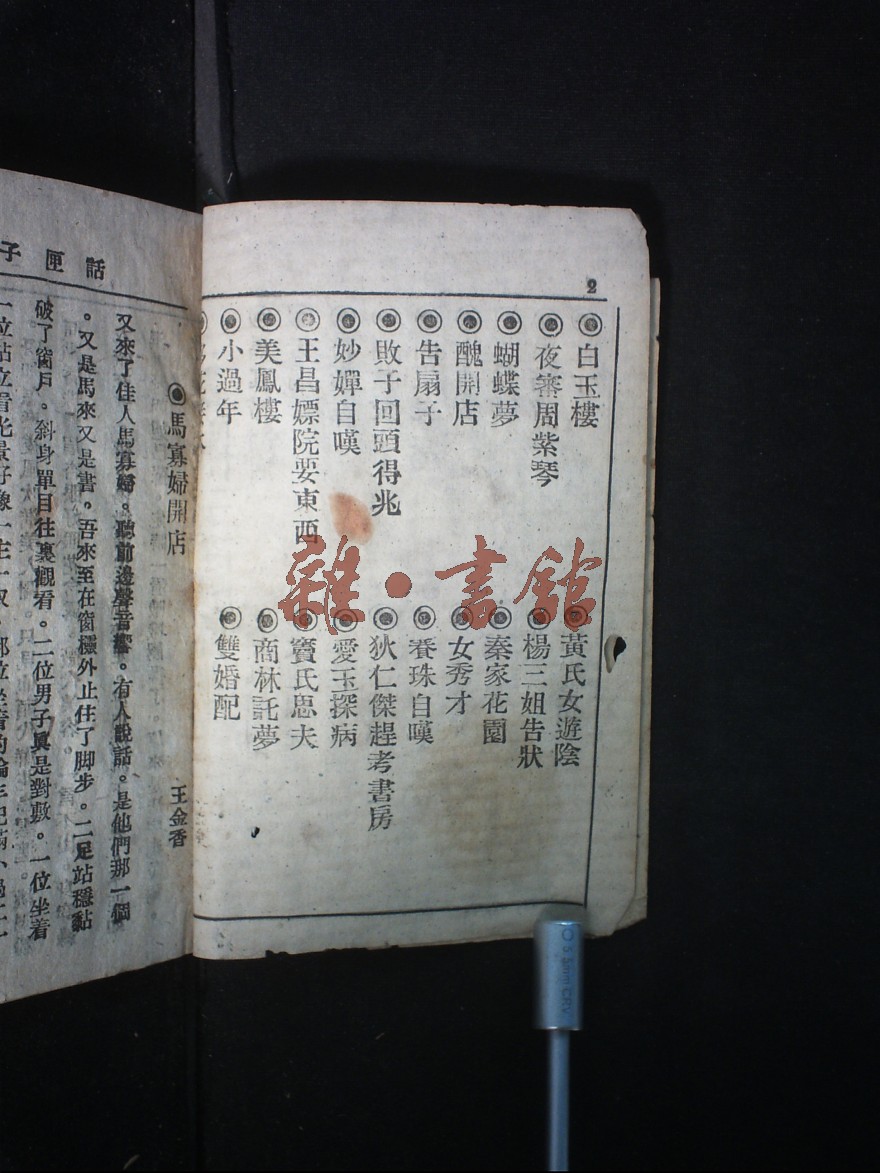 2
◉白玉樓
◉夜審周紫琴
◉蝴蝶夢
◉醜開店
◉告扇子
◉敗子回頭得兆
◉妙嬋自嘆
◉王昌嫖院要東西
◉美鳳樓
◉小過年
◉黃氏女遊陰
◉楊三姐告狀
◉秦家花園
◉女秀才
◉養珠自嘆
◉狄仁傑趕考書房
◉愛玉探病
◉竇氏思夫
◉商林託夢
◉雙婚配
雜·書館
話匣子
◉馬寡婦開店 王金香
又來了佳人馬寡婦。聽前邊聲音響。有人說話。是他們那一個
。又是馬來又是書。吾來至在窗櫺外止住了脚步。二足站穩黏
破了窗戶。斜身單目往裏觀看。二位男子眞是對敷。一位坐着
一位站立看光景好像一主一奴